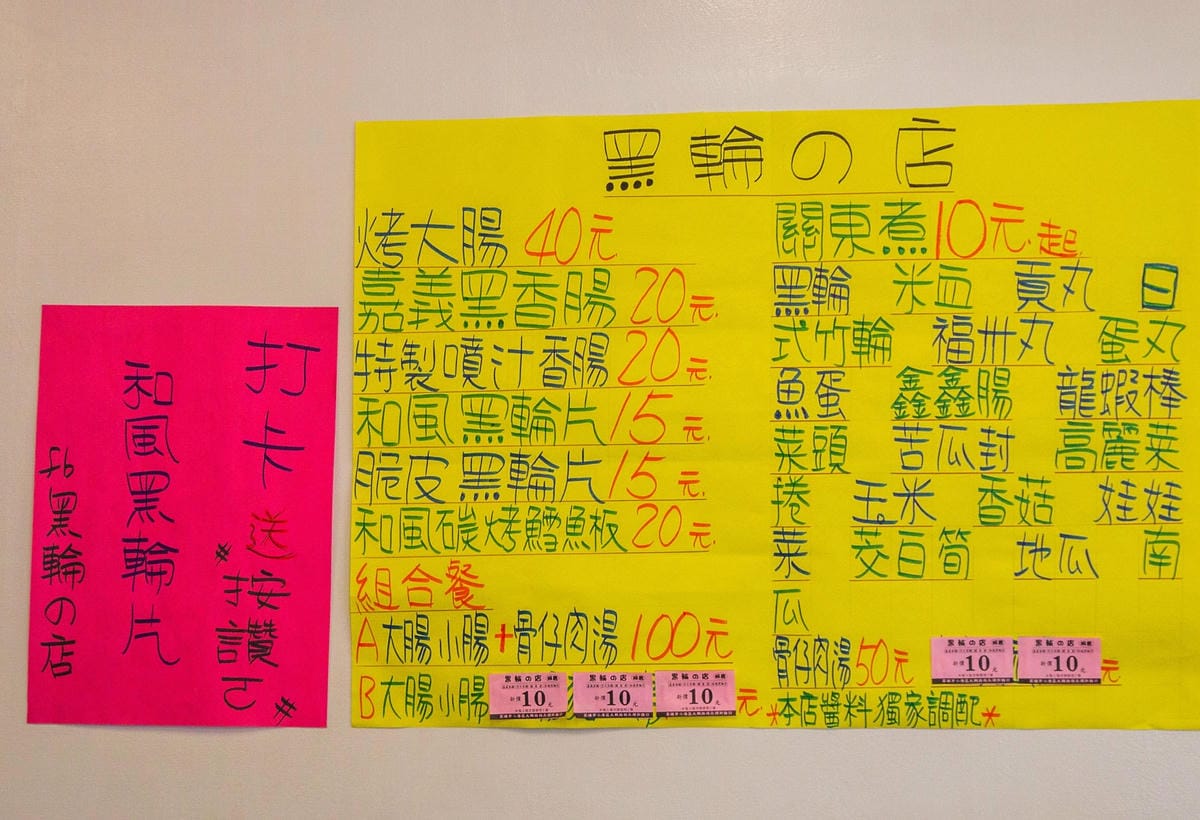 黑輪の店
烤大腸 40元
嘉義黑香腸 20元
特製噴汁香腸 20元
和風黑輪片 15元
脆皮黑輪片 15元
和風碳烤鱈魚板 20元
組合餐
A大腸小腸+骨仔肉湯 100元
B大腸小腸 元
關東煮10元起
黑輪 米血 貢丸 日
式竹輪 福州丸 蛋丸
魚蛋 鑫鑫腸 龍蝦棒
菜頭 苦瓜封 高麗菜
捲 玉米 香菇 娃娃
菜 茭白筍 地瓜 南
瓜
骨仔肉湯50元 元
*本店醬料獨家調配*
黑輪の店
10元
黑輪の店
10元
黑輪の店
10元
黑輪の店
10元
黑輪の店
10元
打卡送
#按讚て#
和風黑輪片
fb黑輪の店